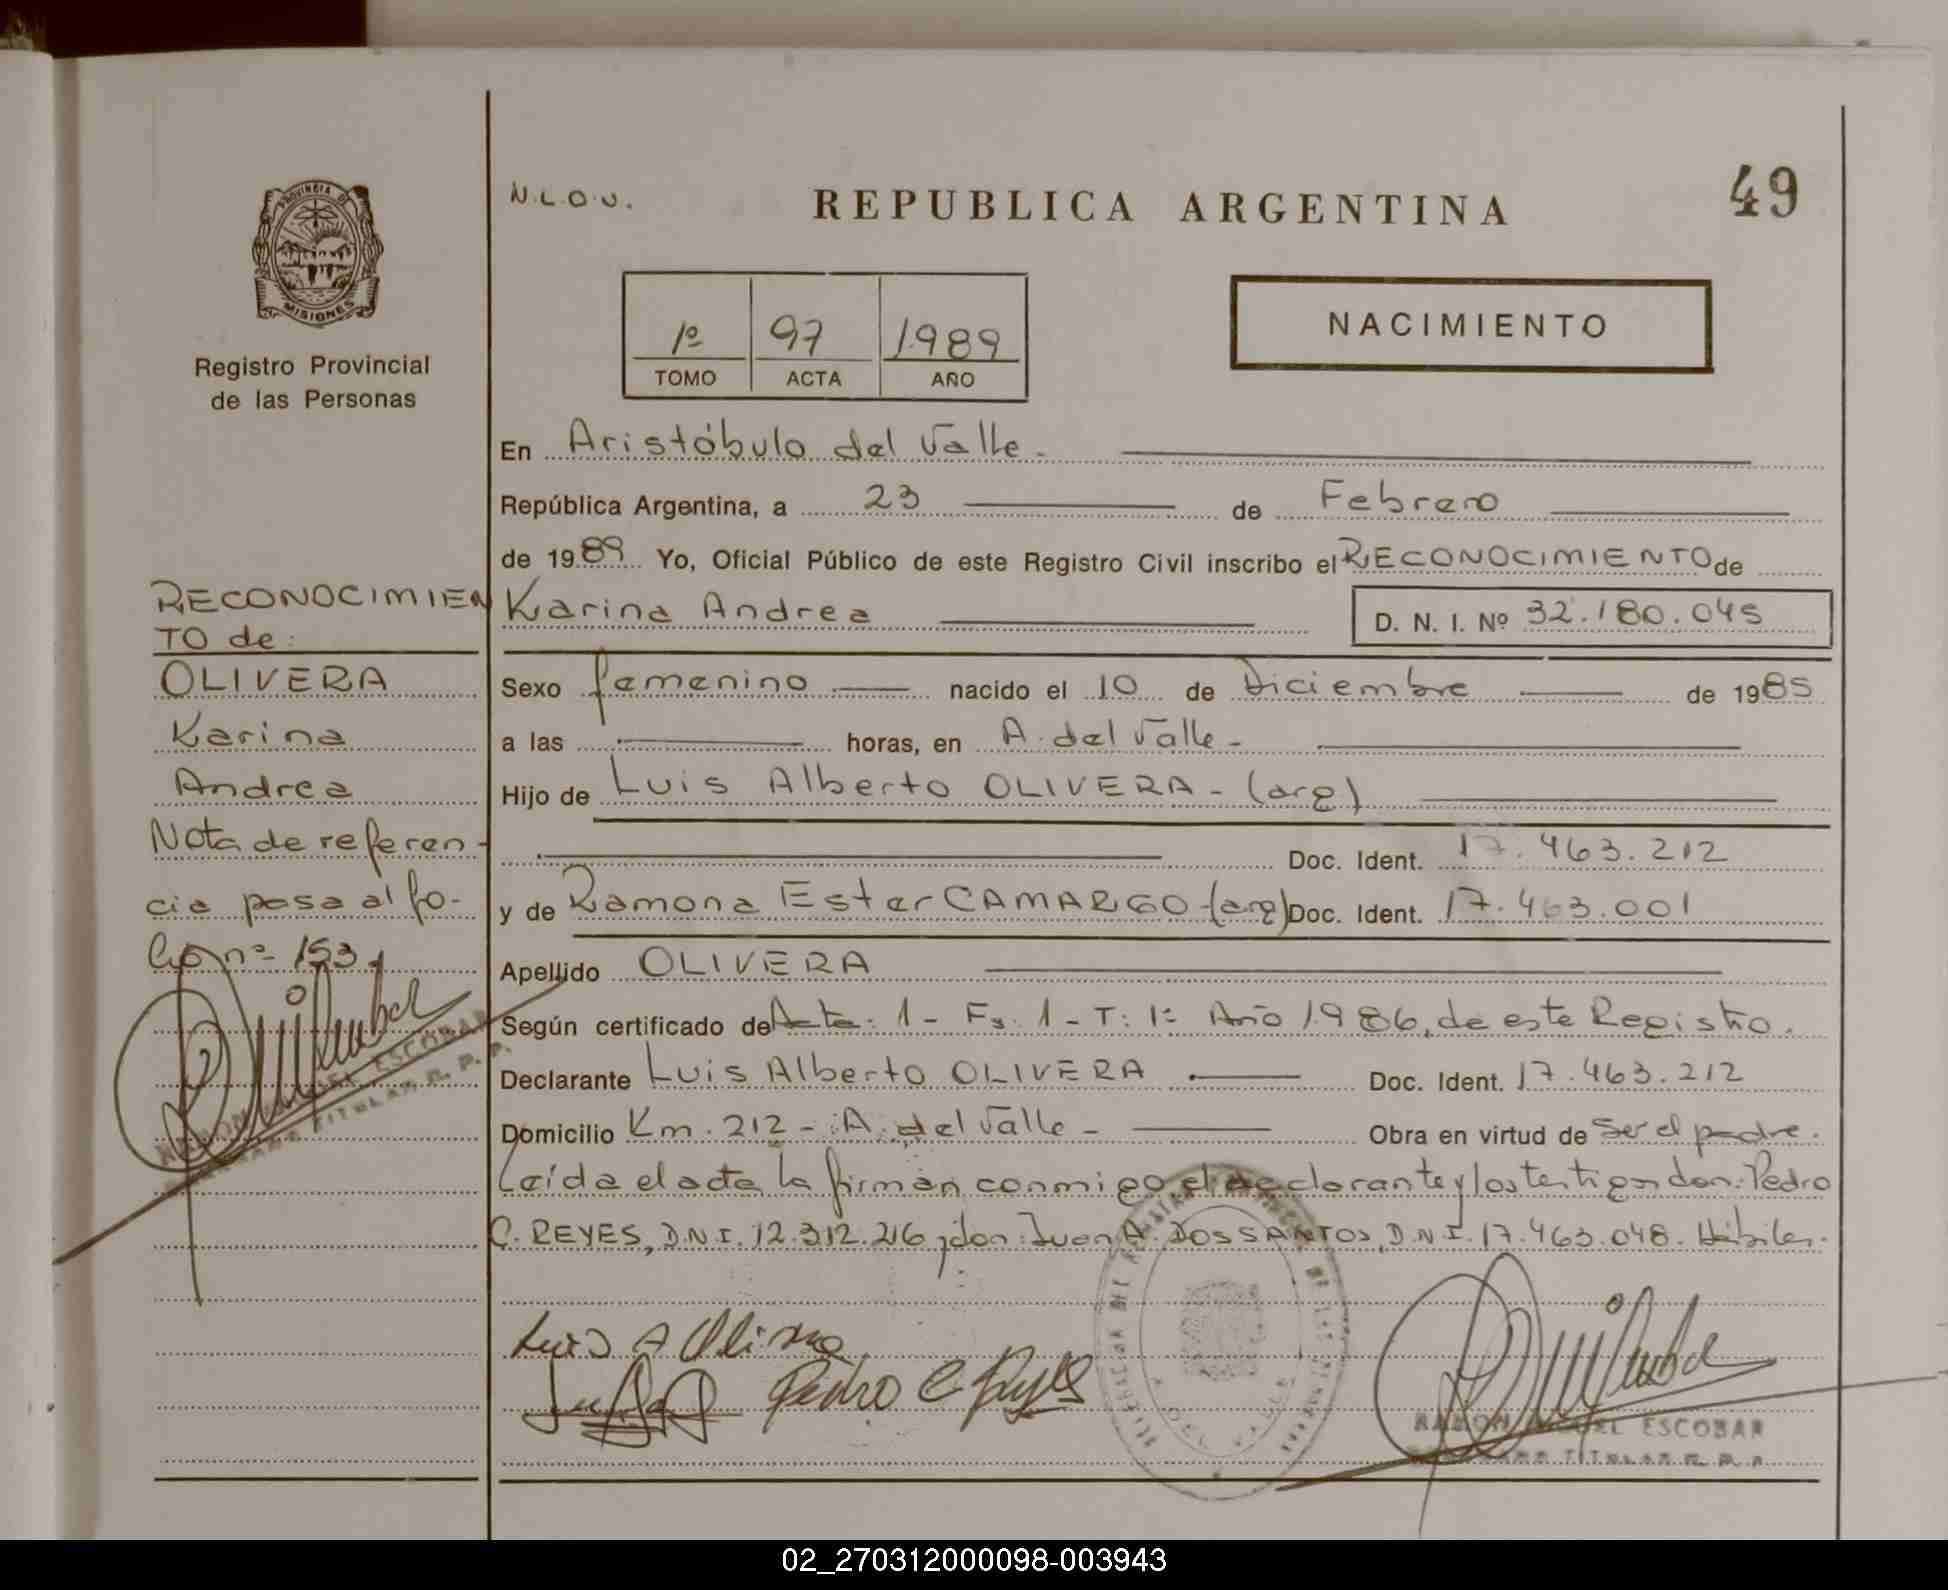 N.L.O.U.
REPUBLICA ARGENTINA
49
PROVINCIA DE
MISIONES
Registro Provincial
de las Personas
1º 97 1989
TOMO ACTA AÑO
NACIMIENTO
En Aristóbulo del Valle.
República Argentina, a 23 de Febrero
de 1989 Yo, Oficial Público de este Registro Civil inscribo el RECONOCIMIENTO de
Karina Andrea D. N. I. Nº 32.180.045
Sexo femenino nacido el 10 de Diciembre de 1985
a las horas, en A. del Valle -
Hijo de Luis Alberto OLIVERA - (arg)
Doc. Ident. 17.463.212
y de Ramona Ester CAMARGO - (arg) Doc. Ident. 17.463.001
Apellido OLIVERA
Según certificado de Acta: 1 - Fs: 1 - T: 1º Año 1986, de este Registro.
Declarante Luis Alberto OLIVERA Doc. Ident. 17.463.212
Domicilio Km. 212 - A. del Valle - Obra en virtud de Ser el padre.
Leída el acta la firman conmigo el declarante y los testigos don: Pedro
C. REYES, D.N.I. 12.312.216 y don: Juan A. DOS SANTOS, D.N.I. 17.463.048. Hábiles.
RECONOCIMIEN
TO de:
OLIVERA
Karina
Andrea
Nota de referen-
cia pasa al fo-
lio nº 153.
RAMON MIGUEL ESCOBAR
TITULAR R. P. P.
Luis A Olivera
Pedro C Reyes
RAMON MIGUEL ESCOBAR
TITULAR R. P. P.
02_270312000098-003943